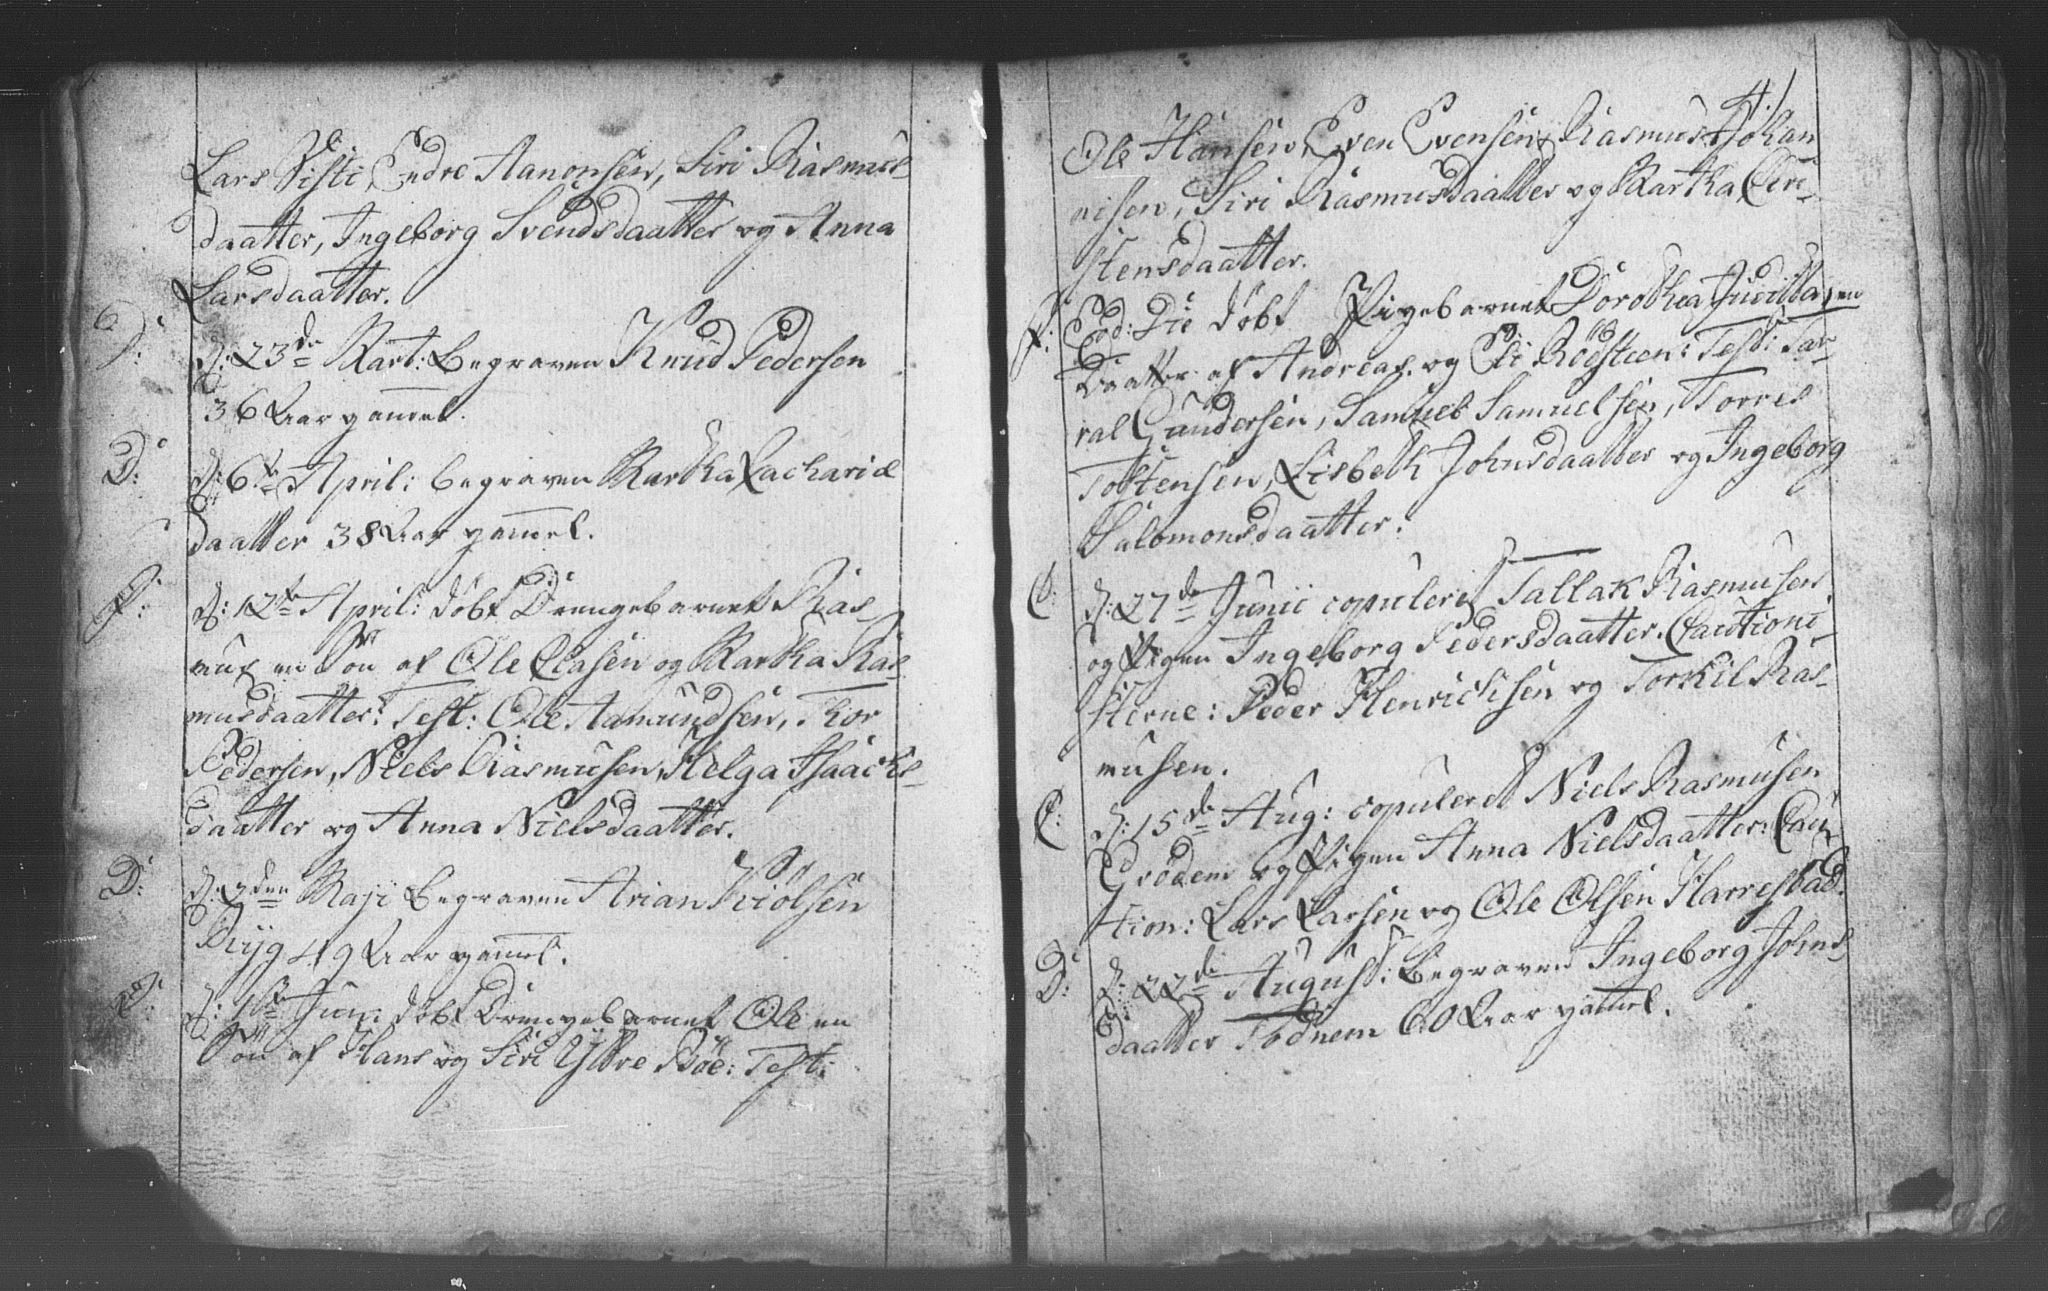 Lars Visti, Endre Aanonsen, Siri Rasmus
daatter, Ingeborg Svendsdaatter og Anna
Larsdaatter.
D: d: 23de Mart: begraven Knud Pedersen
36 Aar gammel.
D: d: 6te April: begraven Martha Zachariæ
daatter 38 Aar gammel.
F: d: 12te April: døbt Drengebarnet Ras-
mus en Søn af Ole Clasen og Martha Ras-
musdaatter: Test: Ole Aamundsen, Thor
Pedersen, Niels Rasmusen, Helga Isaachs-
daatter og Anna Nielsdaatter.
D: d: 2den Maji begraven Arian Kiølsen
49 Aar gammel.
d: 1ste Jun: døbt Drengebarnet Ole en
Søn af Hans og Siri Yttre Bøe: Test:
4.
Ole Hansen, Even Evensen, Rasmus Johan
nisen, Siri Rasmusdaatter og Martha Chri-
stensdaatter.
F: Eod: Die døbt Pigebarnet Dorothea Juditta, en
Daatter af Andreas og Rödsteen: Test: Tar-
ral Gundersen, Samuel Samuelsen, Torres
Tostensen, Lisbeth Johnsdaatter og Ingeborg
Salomonsdaatter.
C: d: 27de Junii copuleret Tallak Rasmusen
og Pigen Ingeborg Pedersdaatter. Cautioni-
sterne: Peder Henrichsen og Torkil Ras-
musen.
C: d: 15de Aug: copuleret Niels Rasmusen
Grödem og Pigen Anna Nielsdaatter: Cau-
tion: Lars Larsen og Ole Olsen Harrestad.
D: d: 22de August: begraven Ingeborg Johns
daatter Todnem 60 Aar gammel.